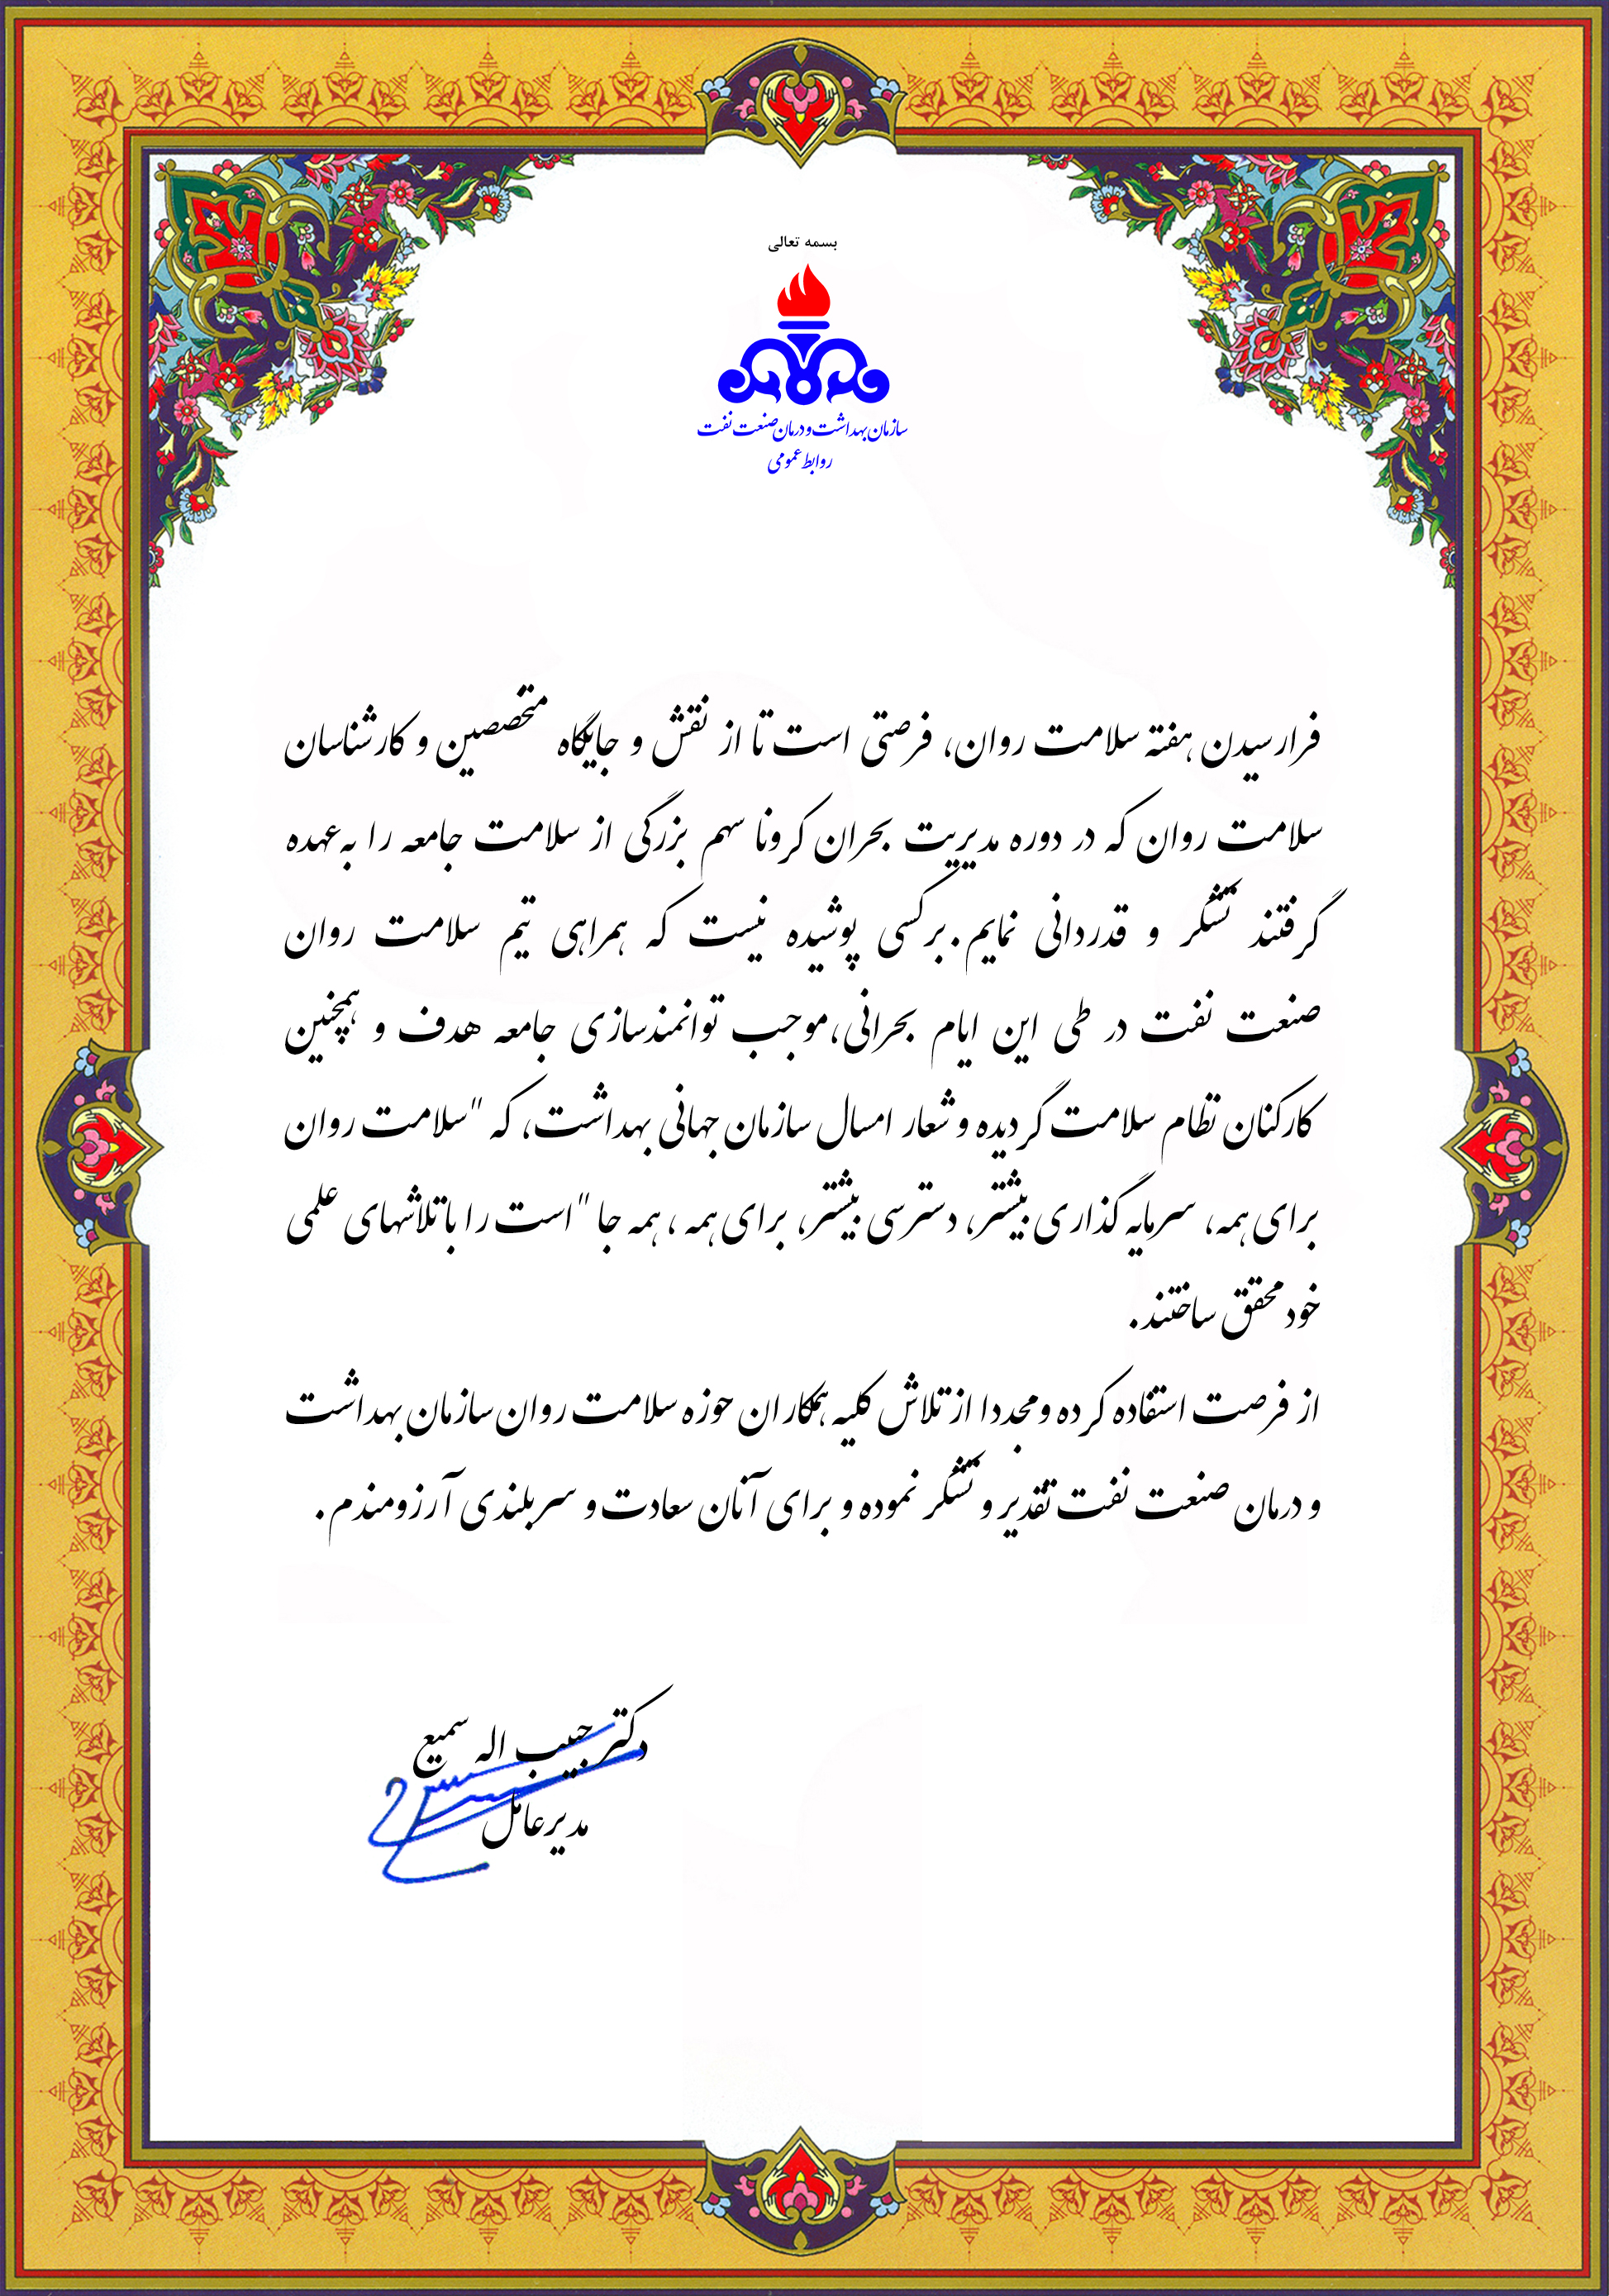 بسمه تعالی
سازمان بهداشت و درمان صنعت نفت
روابط عمومی
فرارسیدن هفته سلامت روان، فرصتی است تا از نقش و جایگاه متخصصین و کارشناسان
سلامت روان که در دوره مدیریت بحران کرونا سهم بزرگی از سلامت جامعه را به عهده
گرفتند تشکر و قدردانی نمایم. برکسی پوشیده نیست که همراهی تیم سلامت روان
صنعت نفت در طی این ایام بحرانی،موجب توانمندسازی جامعه هدف و همچنین
کارکنان نظام سلامت گردیده و شعار امسال سازمان جهانی بهداشت، که "سلامت روان
برای همه، سرمایه گذاری بیشتر، دسترسی بیشتر، برای همه ، همه جا "است را با تلاشهای علمی
خود محقق ساختند.
از فرصت استفاده کرده ومجددا از تلاش کلیه همکاران حوزه سلامت روان سازمان بهداشت
و درمان صنعت نفت تقدیر و تشکر نموده و برای آنان سعادت و سربلندی آرزومندم .
دکتر حبیب اله سمیع
مدیرعامل